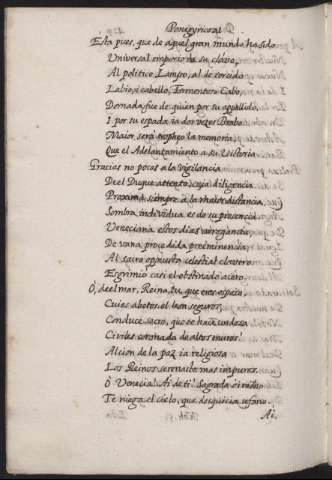 Panegyrico al D.
Esta pues, que de aquel gran mundo ha sido
Universal emporio de su clavo,
Al politico Lampo, al de torcido
Labio, i cabello, Tormentoso Cabo,
De nada fie de quien por su apellido,
I por su espada ia dos vezes Bravo
Maior será trofeo la memoria,
Que el Adelantamiento a su Victoria
Gracias no pocas a la vigilancia
De el Duque atento, cuia diligencia
Proxima siempre a la maior distancia,
Sombra individua es de su presencia
Veneciana estos dias arrogancia
De vana procedida preeminencia,
Al sacro oppuesta celestial clavero
Esgrimio casi el obstinado azero.
Ó, de el mar, Reina, tu, que eres esposa
Cuios abetos el Leon seguros,
Conduce sacro, que te haze undosa
Cívitas coronada de altos muros!
Alcion de la paz ia religiosa
Los Reinos serenaste mas impuros.
Ó Venecia! Ai de ti! Sagrada oi
Te niega el cielo, que desquicia ufano.
Ai